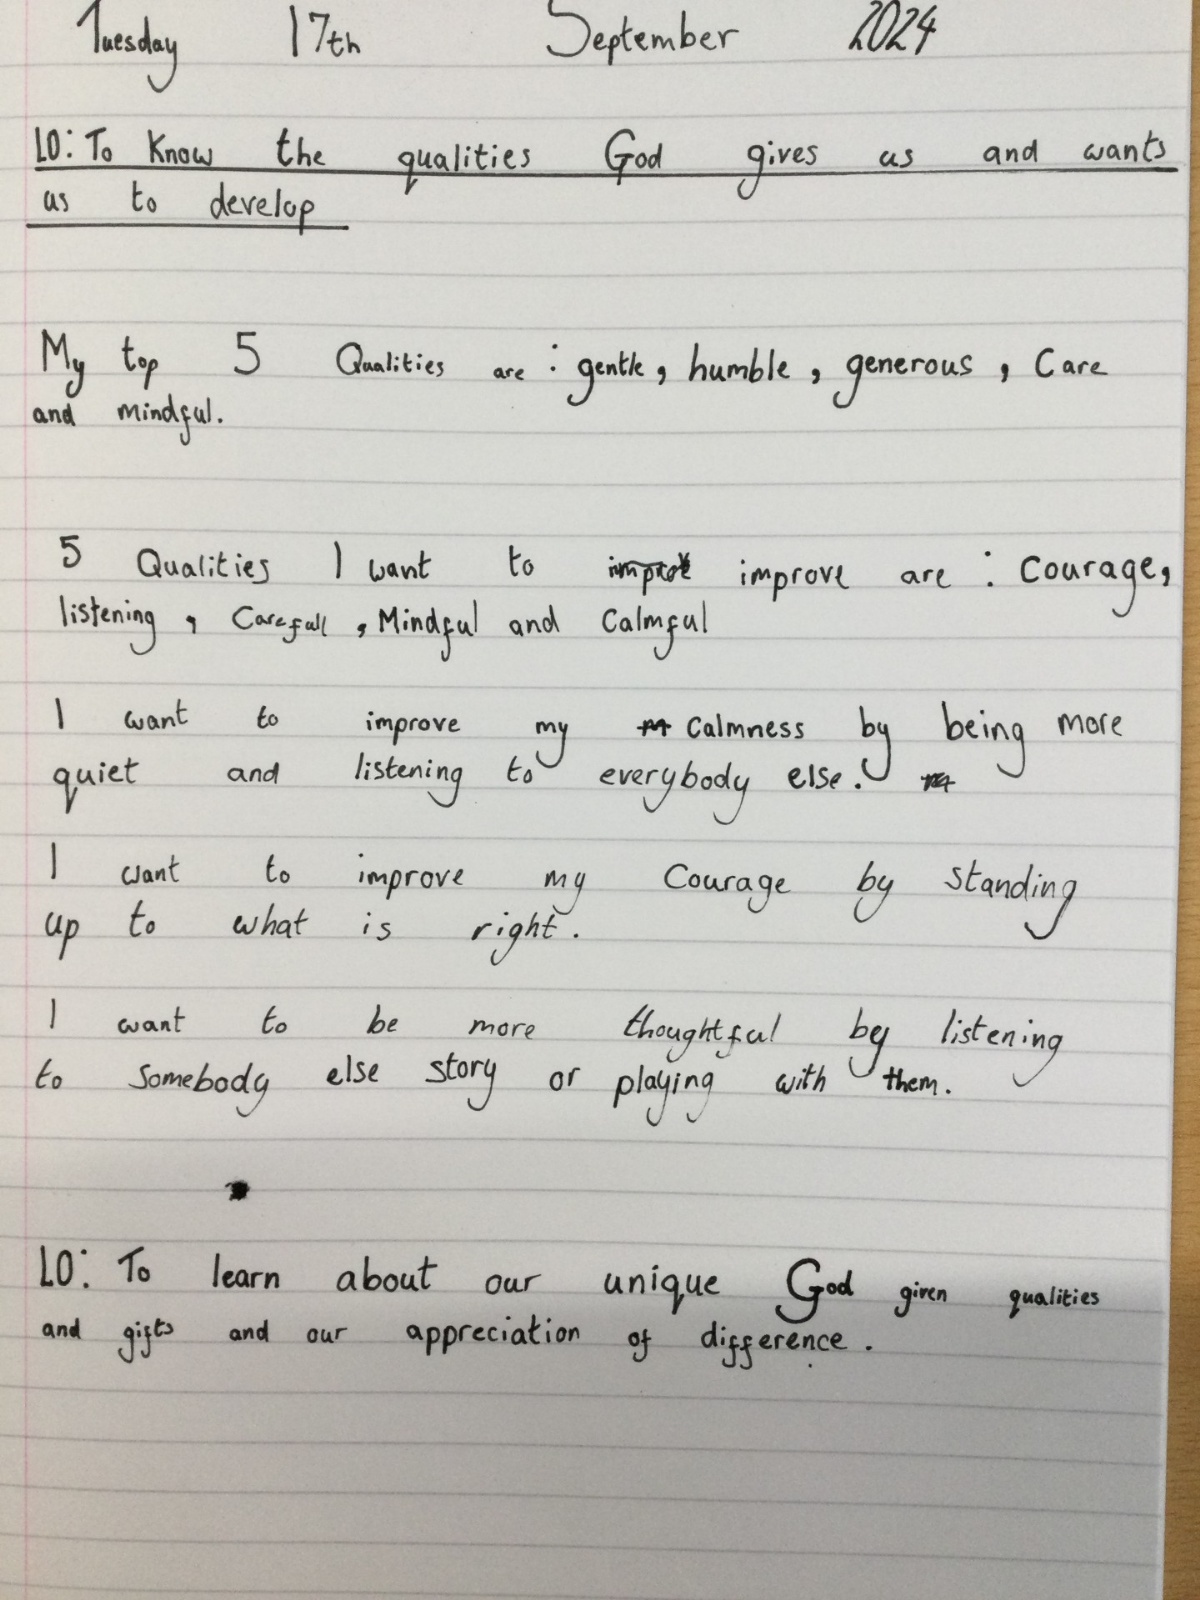 Tuesday 17th September 2024
LO: To Know the qualities God gives us and wants
us to develop
My top 5 Qualities are : gentle, humble, generous, Care
and mindful.
5 Qualities I want to improve are : Courage,
listening, Carefull, Mindful and Calmful
I want to improve my Calmness by being more
quiet and listening to everybody else.
I want to improve my Courage by standing
up to what is right.
I want to be more thoughtful by listening
to Somebody else story or playing with them.
LO: To learn about our unique God given qualities
and gifts and our appreciation of difference.